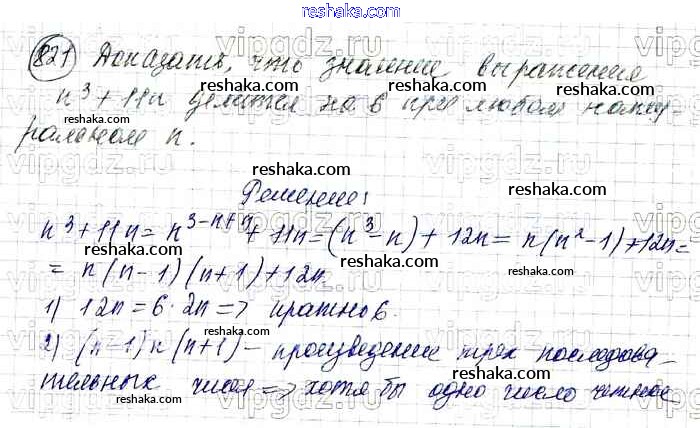 reshaka.com
821 Доказать, что значение выражения
n³ + 11n делится на 6 при любом нату-
ральном n.
reshaka.com
Решение:
n³ + 11n = n³ - n + n + 11n = (n³ - n) + 12n = n(n² - 1) + 12n =
= n(n - 1)(n + 1) + 12n
1) 12n = 6 · 2n => кратно 6.
2) (n - 1)n(n + 1) - произведение трех последова-
тельных чисел => хотя бы одно число четное